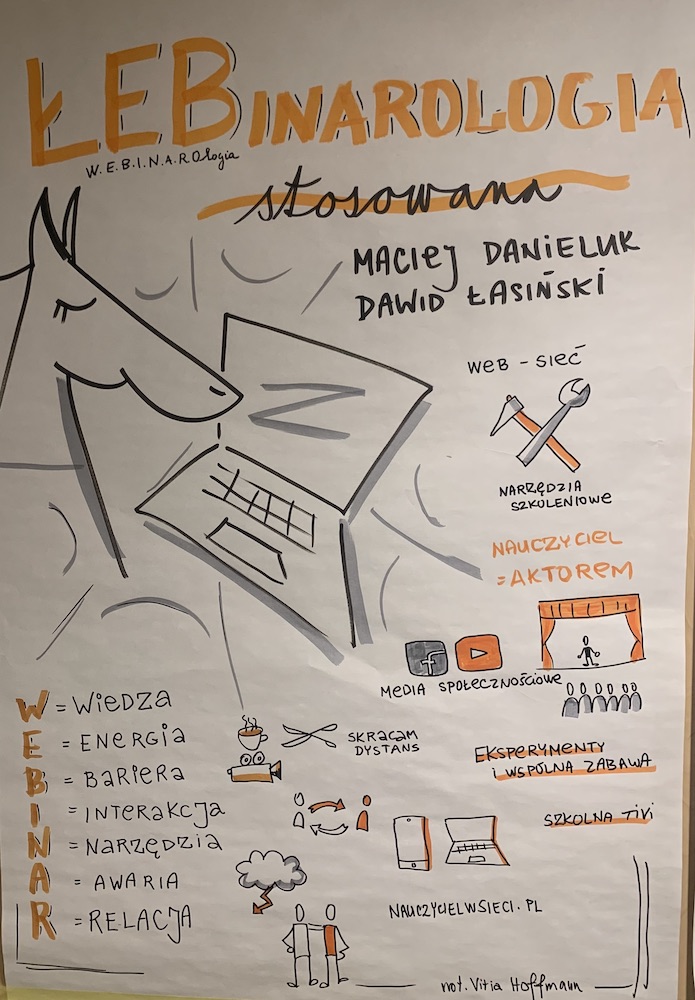 ŁEBINAROLOGIA
W.E.B.I.N.A.ROlogia
stosowana
MACIEJ DANIELUK
DAWID ŁASIŃSKI
WEB - SIEĆ
NARZĘDZIA
SZKOLENIOWE
NAUCZYCIEL
= AKTOREM
f
MEDIA SPOŁECZNOŚCIOWE
W = WIEDZA
E = ENERGIA
B = BARIERA
I = INTERAKCJA
N = NARZĘDZIA
A = AWARIA
R = RELACJA
SKRACAM
DYSTANS
EKSPERYMENTY
i WSPÓLNA ZABAWA
SZKOLNA TiVi
NAUCZYCIELWSIECI.PL
not. Vitia Hoffmann